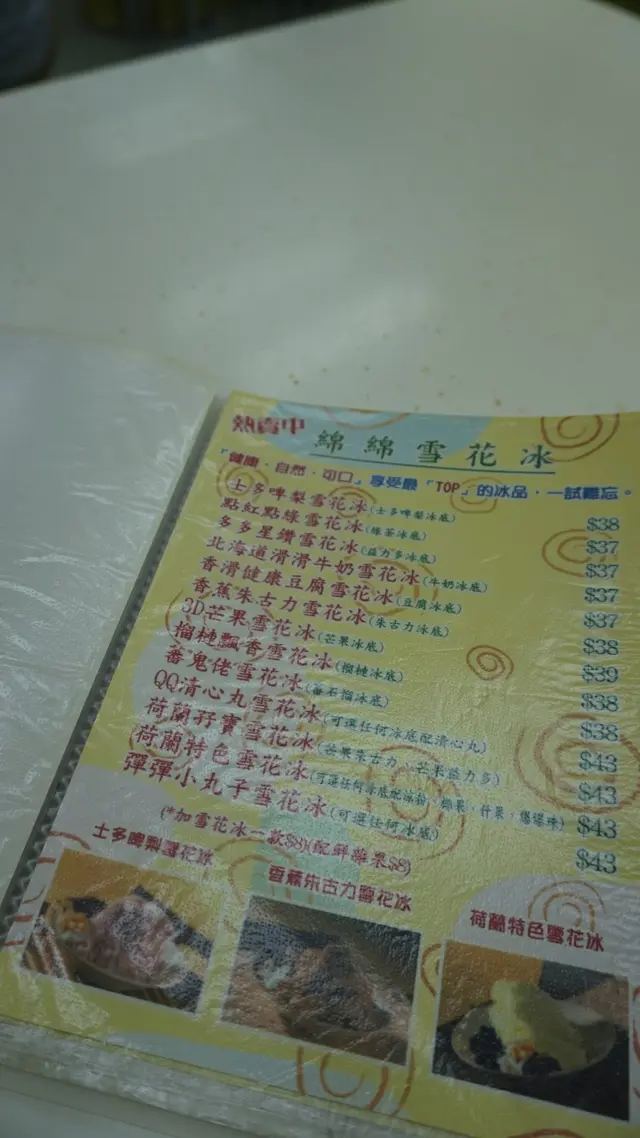 熱賣中 綿綿雪花冰
「健康．自然．可口」享受最「TOP」的冰品，一試難忘。
士多啤梨雪花冰(士多啤梨冰底) $38
點紅點綠雪花冰(綠茶冰底) $37
多多星鑽雪花冰(益力多冰底) $37
北海道滑滑牛奶雪花冰(牛奶冰底) $37
香滑健康豆腐雪花冰(豆腐冰底) $37
香蕉朱古力雪花冰(朱古力冰底) $38
3D芒果雪花冰(芒果冰底) $39
榴槤飄香雪花冰(榴槤冰底) $38
番鬼佬雪花冰(番石榴冰底) $38
QQ清心丸雪花冰(可選任何冰底配清心丸) $43
荷蘭孖寶雪花冰(芒果朱古力、芒果益力多) $43
荷蘭特色雪花冰(可選任何冰底配涼粉，椰果，什果，爆爆珠) $43
彈彈小丸子雪花冰(可選任何冰底) $43
(*加雪花冰一款$8)(配鮮雜果$8)
士多啤梨雪花冰
香蕉朱古力雪花冰
荷蘭特色雪花冰